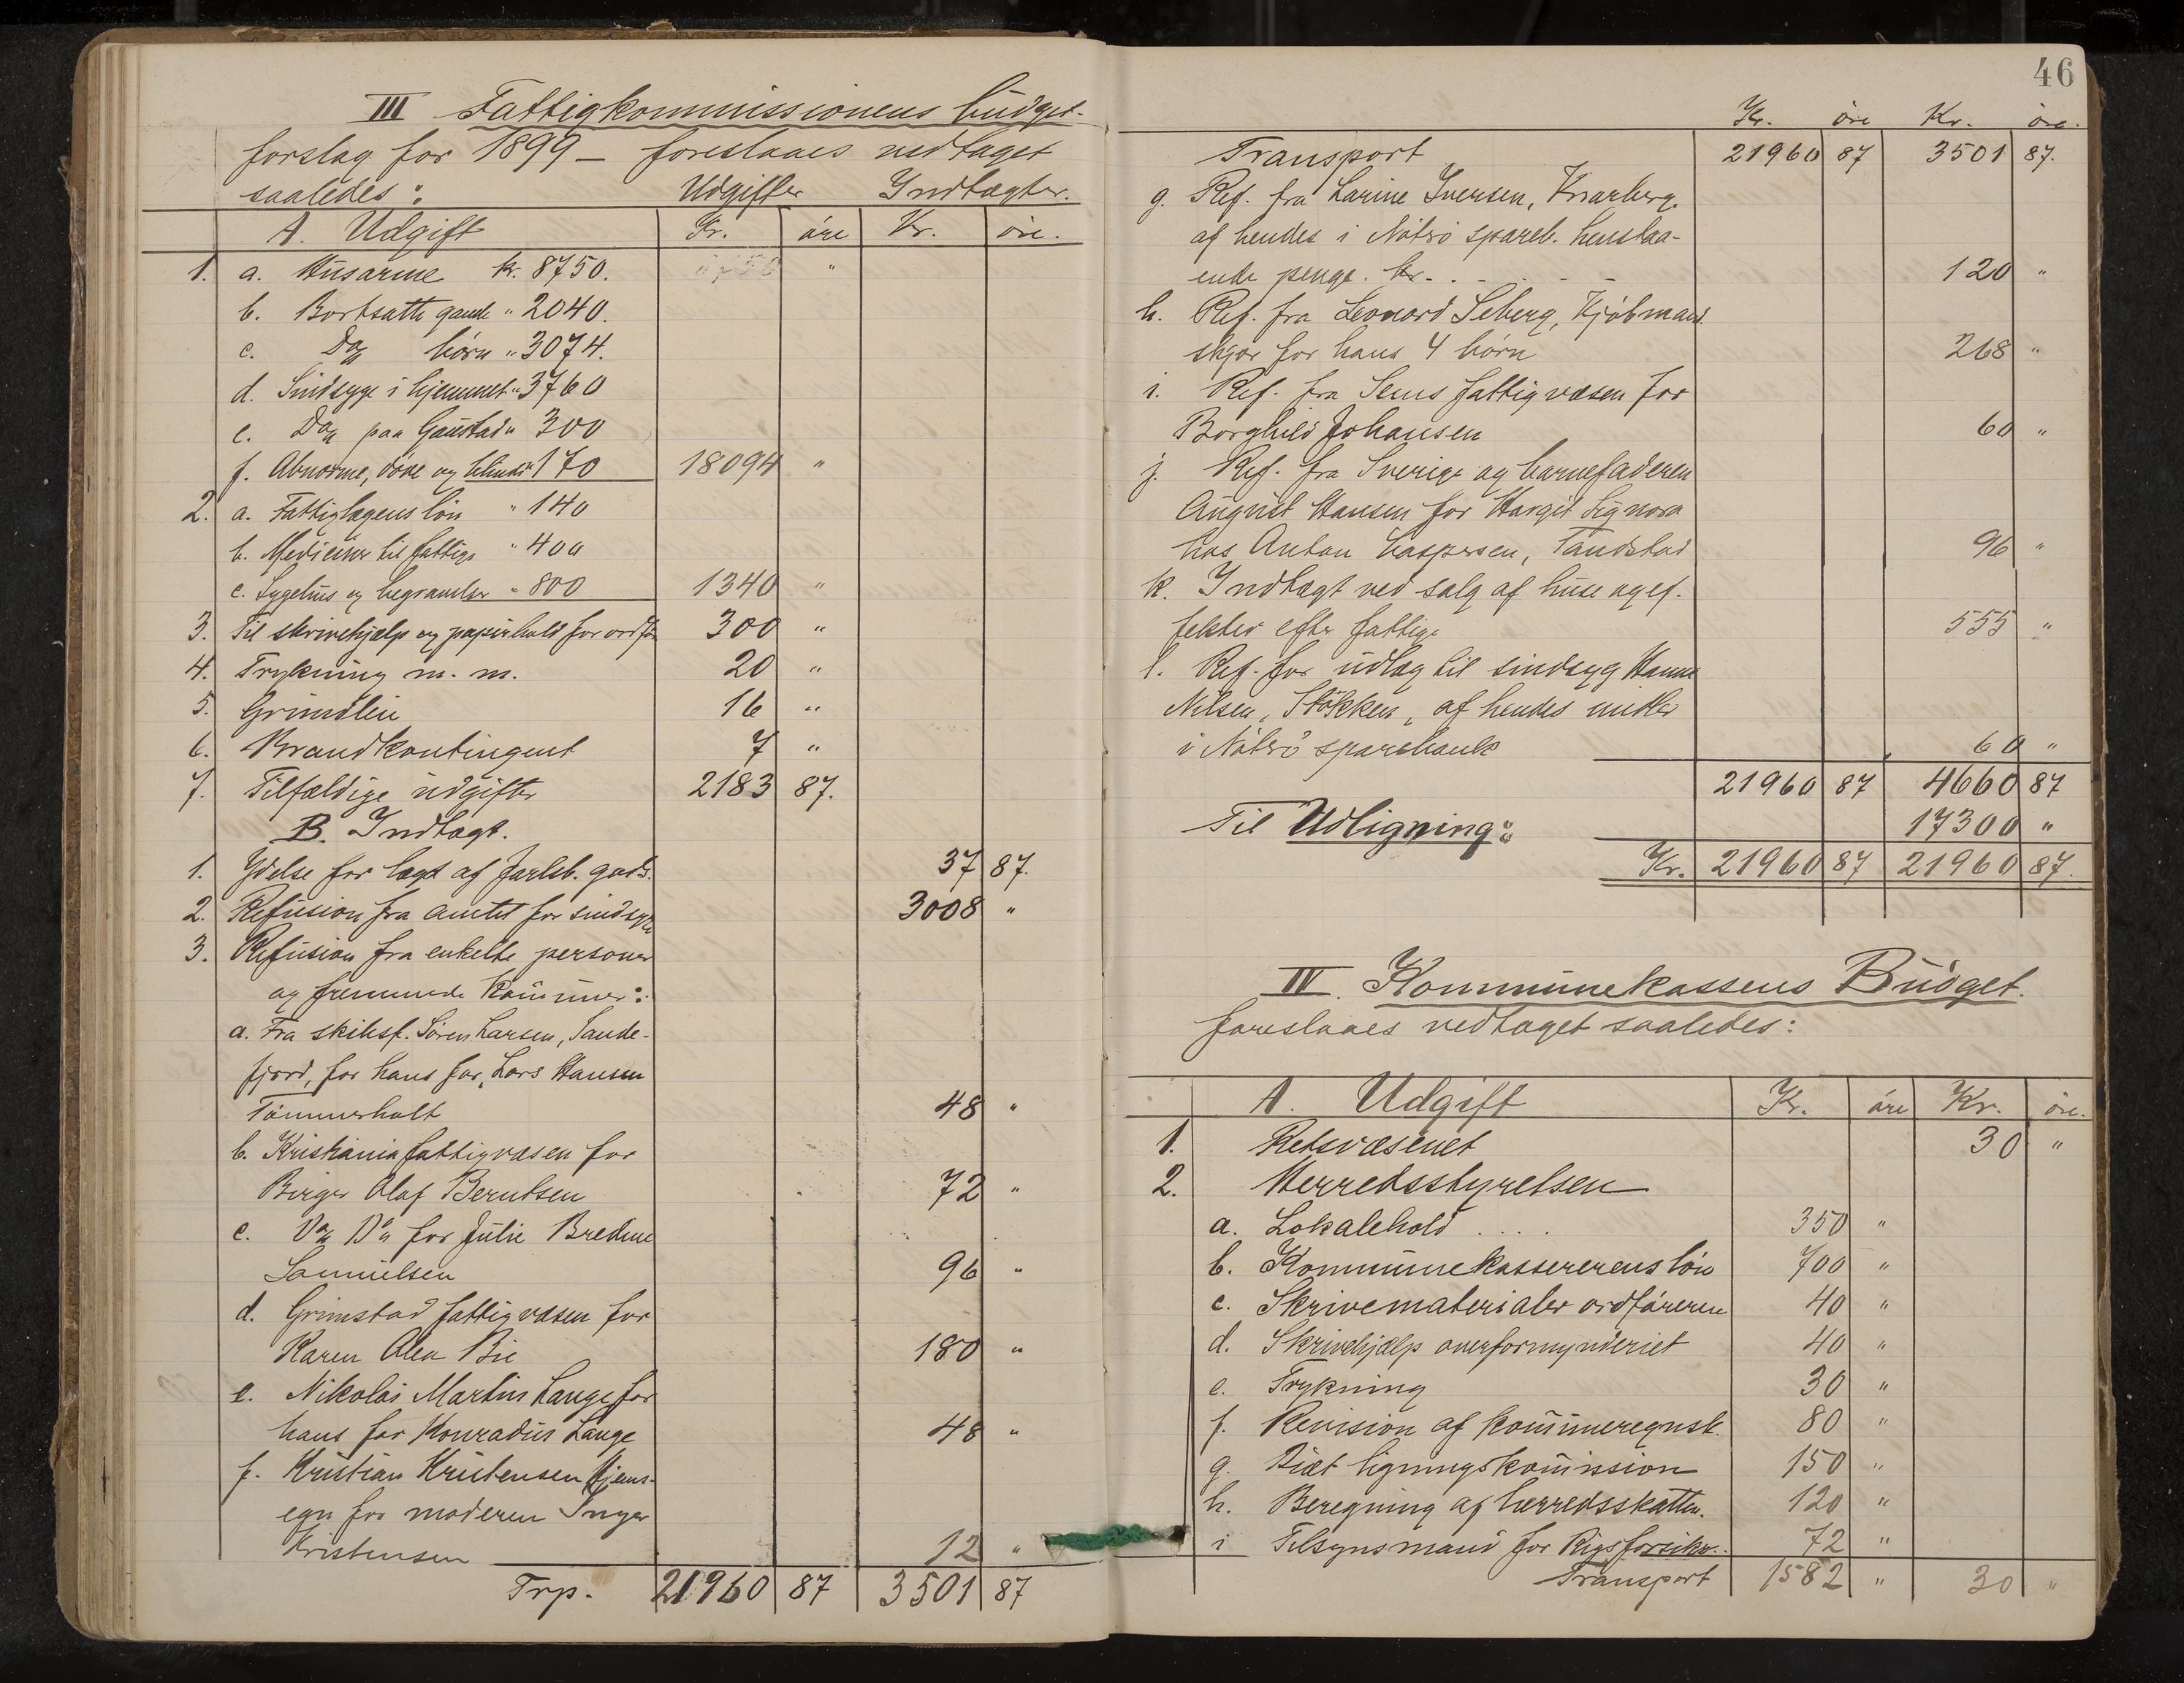 III Fattigkommissionens budget-
forslag for 1899 – foreslaaes vedtaget
saaledes: Udgifter Indtægter.
A. Udgift Kr. öre Kr. öre.
1. a. Husarme kr. 8750. "
b. Bortsatte gamle " 2040.
c. Do börn " 3074.
d. Sindsyge i hjemmet " 3760
e. Do paa Gaustad " 300
f. Abnorme, döve og blinde " 170 18094 "
2. a. Fattiglægens lön " 140
b. Mediciner til fattige " 400
c. Sygehus og begravelser " 800 1340 "
3. Til skrivehjælp og papirhold for ordf. 300 "
4. Trykning m. m. 20 "
5. Grundleie 16 "
6. Brandkontingent 7 "
7. Tilfældige udgifter 2183 87.
B. Indtægt.
1. Ydelse for lægd af Jarlsb. gods. 37 87.
2. Refusion fra amtet for sindsyge 3008 "
3. Refusion fra enkelte personer
og fremmede kommuner:
a. Fra skibsf. Sören Larsen, Sande-
fjord, for hans far, Lars Hansen
Tömmerholt 48 "
b. Kristiania fattigvæsen for
Birger Olaf Berntsen 72 "
c. Do Do for Julie Bredine
Samuelsen 96 "
d. Grimstad fattigvæsen for
Karen Alea Bie 180 "
e. Nikolai Martin Lange for
hans far Konradus Lange 48 "
f. Kristian Kristensen Hjems-
egn for moderen Inger
Kristensen 12 "
Trp. 21960 87 3501 87
46
Kr. öre Kr. öre.
Transport 21960 87 3501 87.
g. Ref. fra Larine Iversen, Knarberg,
af hendes i Nöterö spareb. henstaa-
ende penge. kr. 120 "
h. Ref. fra Leonard Seberg, Kjöbmand
skjær for hans 4 börn 268 "
i. Ref. fra Sems fattigvæsen for
Borghild Johansen 60 "
j. Ref. fra Sverige og barnefaderen
August Hansen for Margit Signora
hos Anton Kaspersen, Tandstad 96 "
k. Indtægt ved salg af huse og ef-
fekter efter fattige 555 "
l. Ref. for udlæg til sindsyg Hanna
Nilsen, Stokken, af hendes midler
i Nöterö sparebank 60 "
21960 87 4660 87
Til Udligning: 17300 "
Kr. 21960 87 21960 87.
IV. Kommunekassens Budget.
foreslaaes vedtaget saaledes:
A. Udgift Kr. öre Kr. öre.
1. Retsvæsenet 30 "
2. Herredsstyrelsen
a. Lokalehold .... 350 "
b. Kommunekassererens lön 700 "
c. Skrivematerialer ordföreren 40 "
d. Skrivehjælp overformynderiet 40 "
e. Trykning 30 "
f. Revision af kommuneregnsk. 80 "
g. Diæt ligningskommission 150 "
h. Beregning af herredsskatten. 120 "
i Tilsynsmand for Rigsforsikr. 72 "
Transport 1582 " 30 "